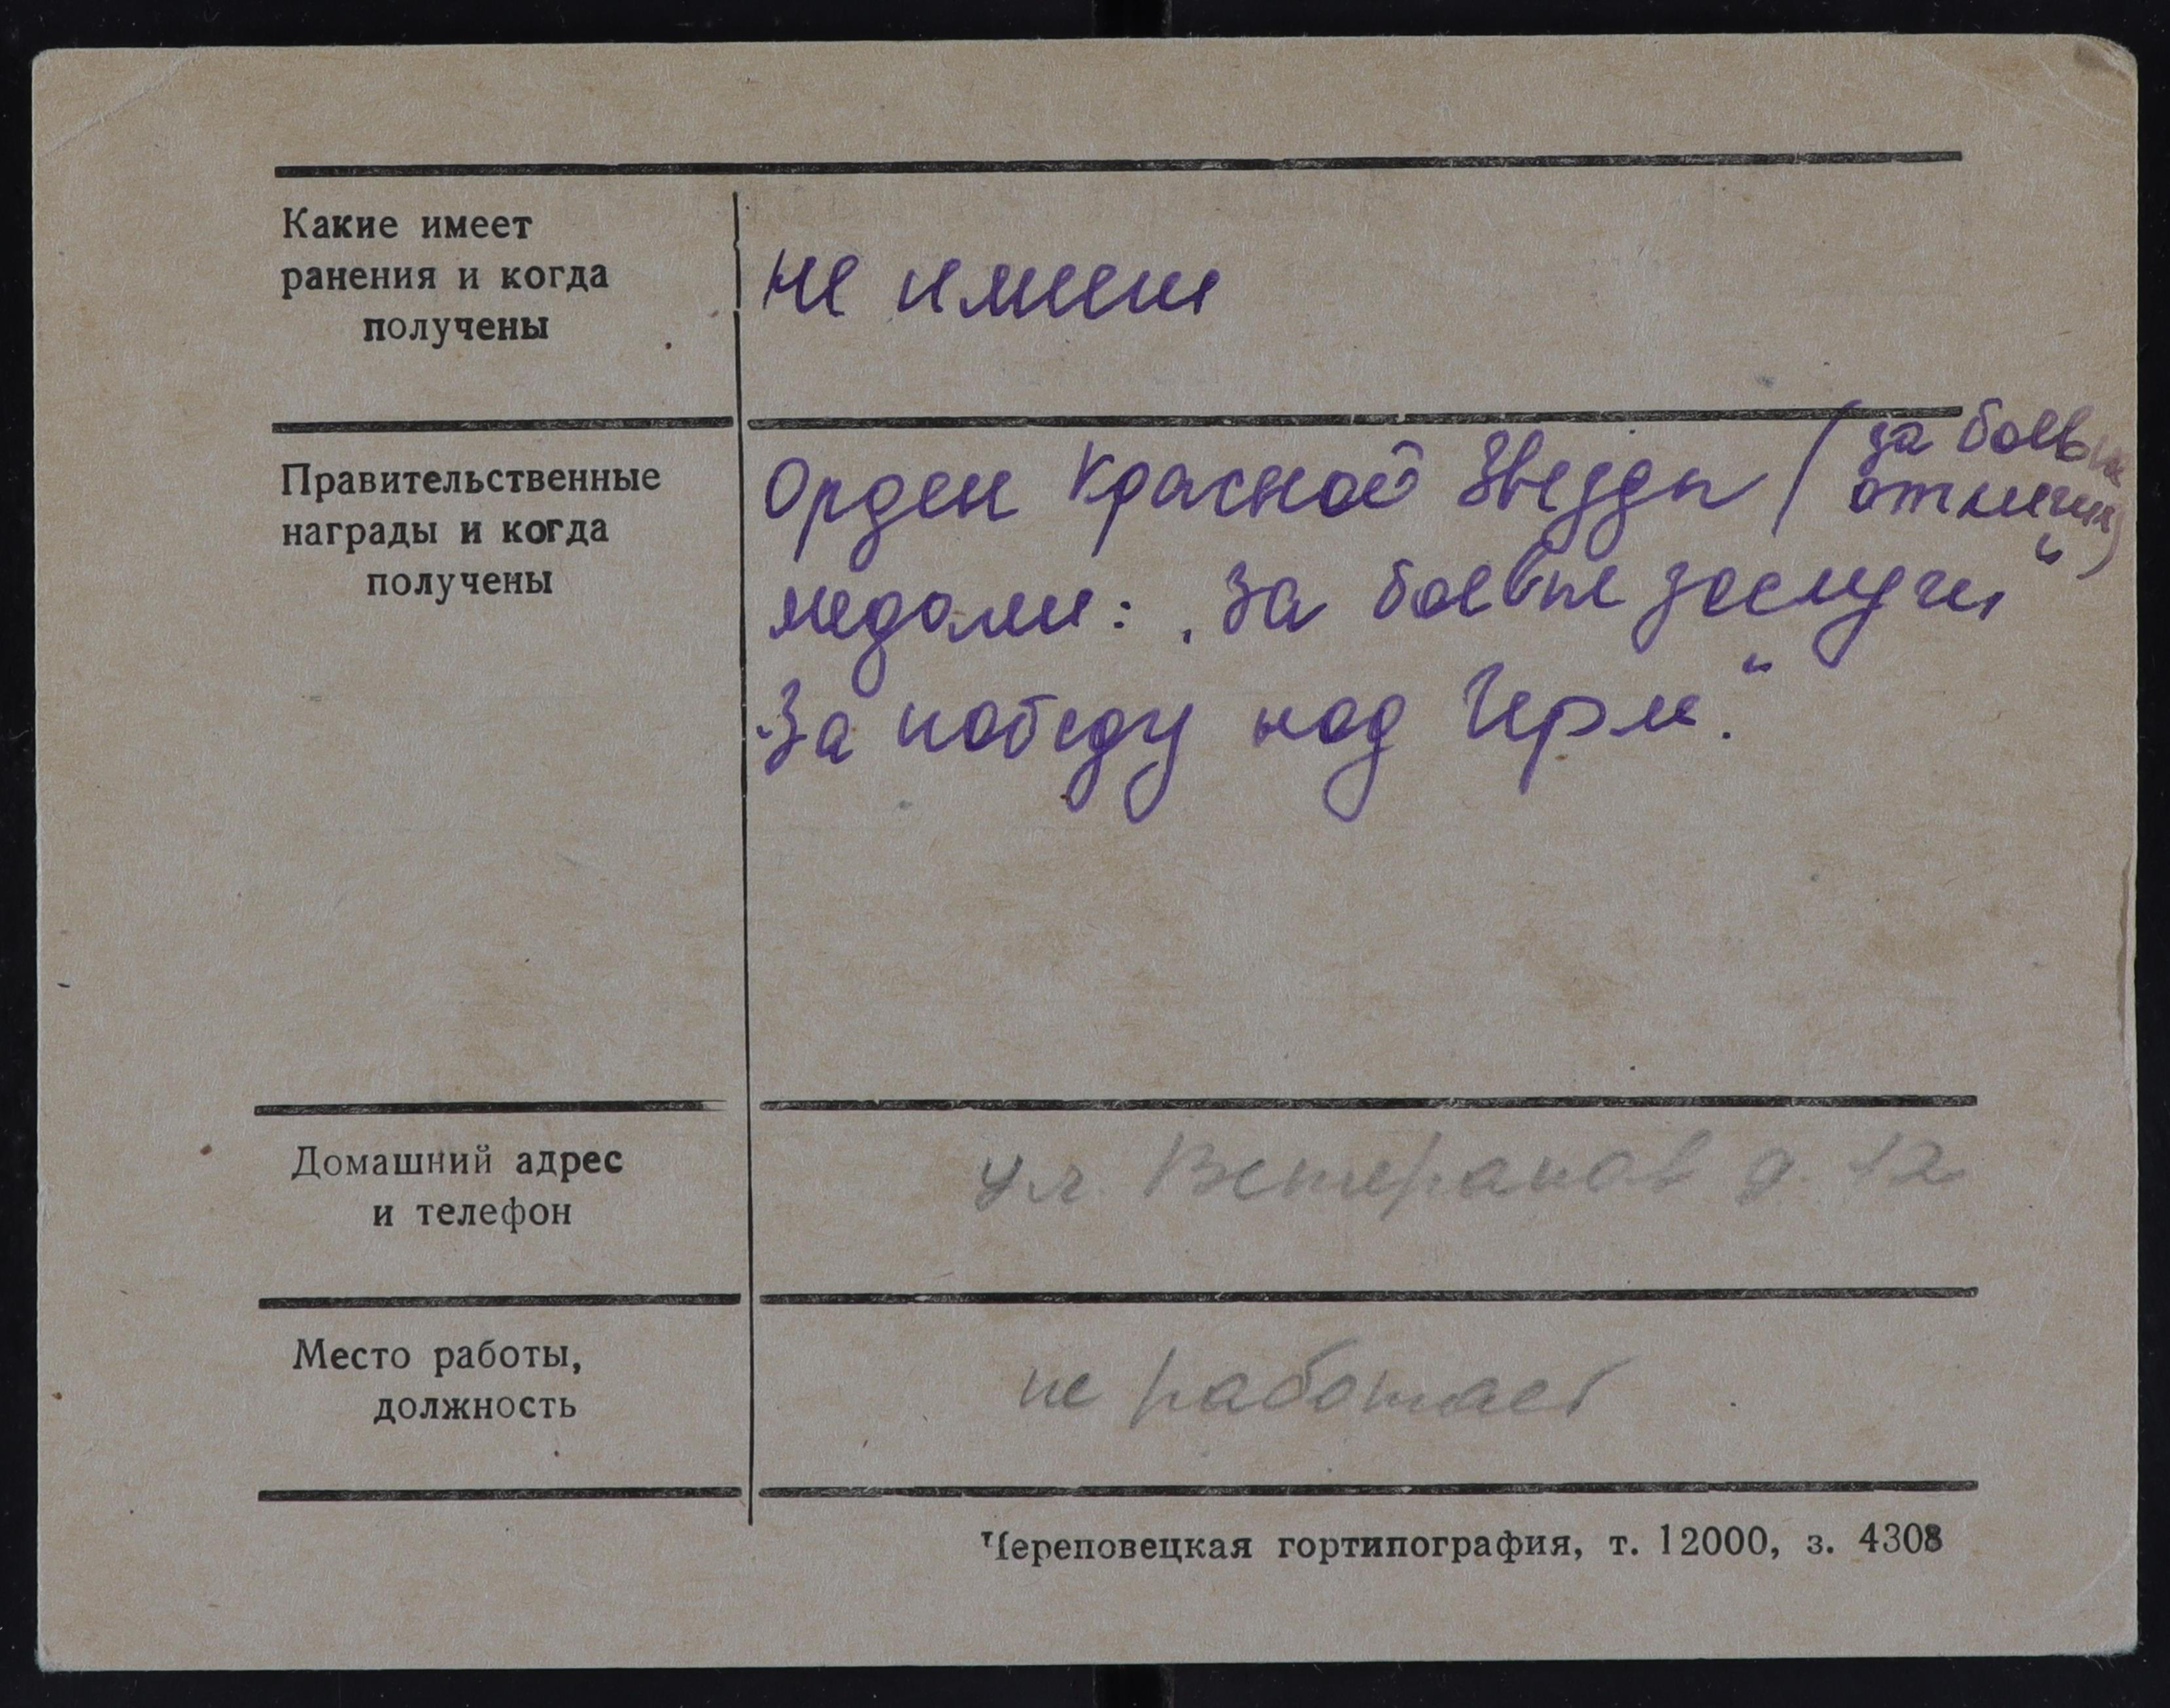 Какие имеет
ранения и когда
получены
не имеет
Правительственные
награды и когда
получены
Орден Красной Звезды (за боевые
отличия)
медали: „За боевые заслуги“
„За победу над Герм.“
Домашний адрес
и телефон
ул. Ветеранов д. 12
Место работы,
должность
не работает
Череповецкая гортипография, т. 12000, з. 4308